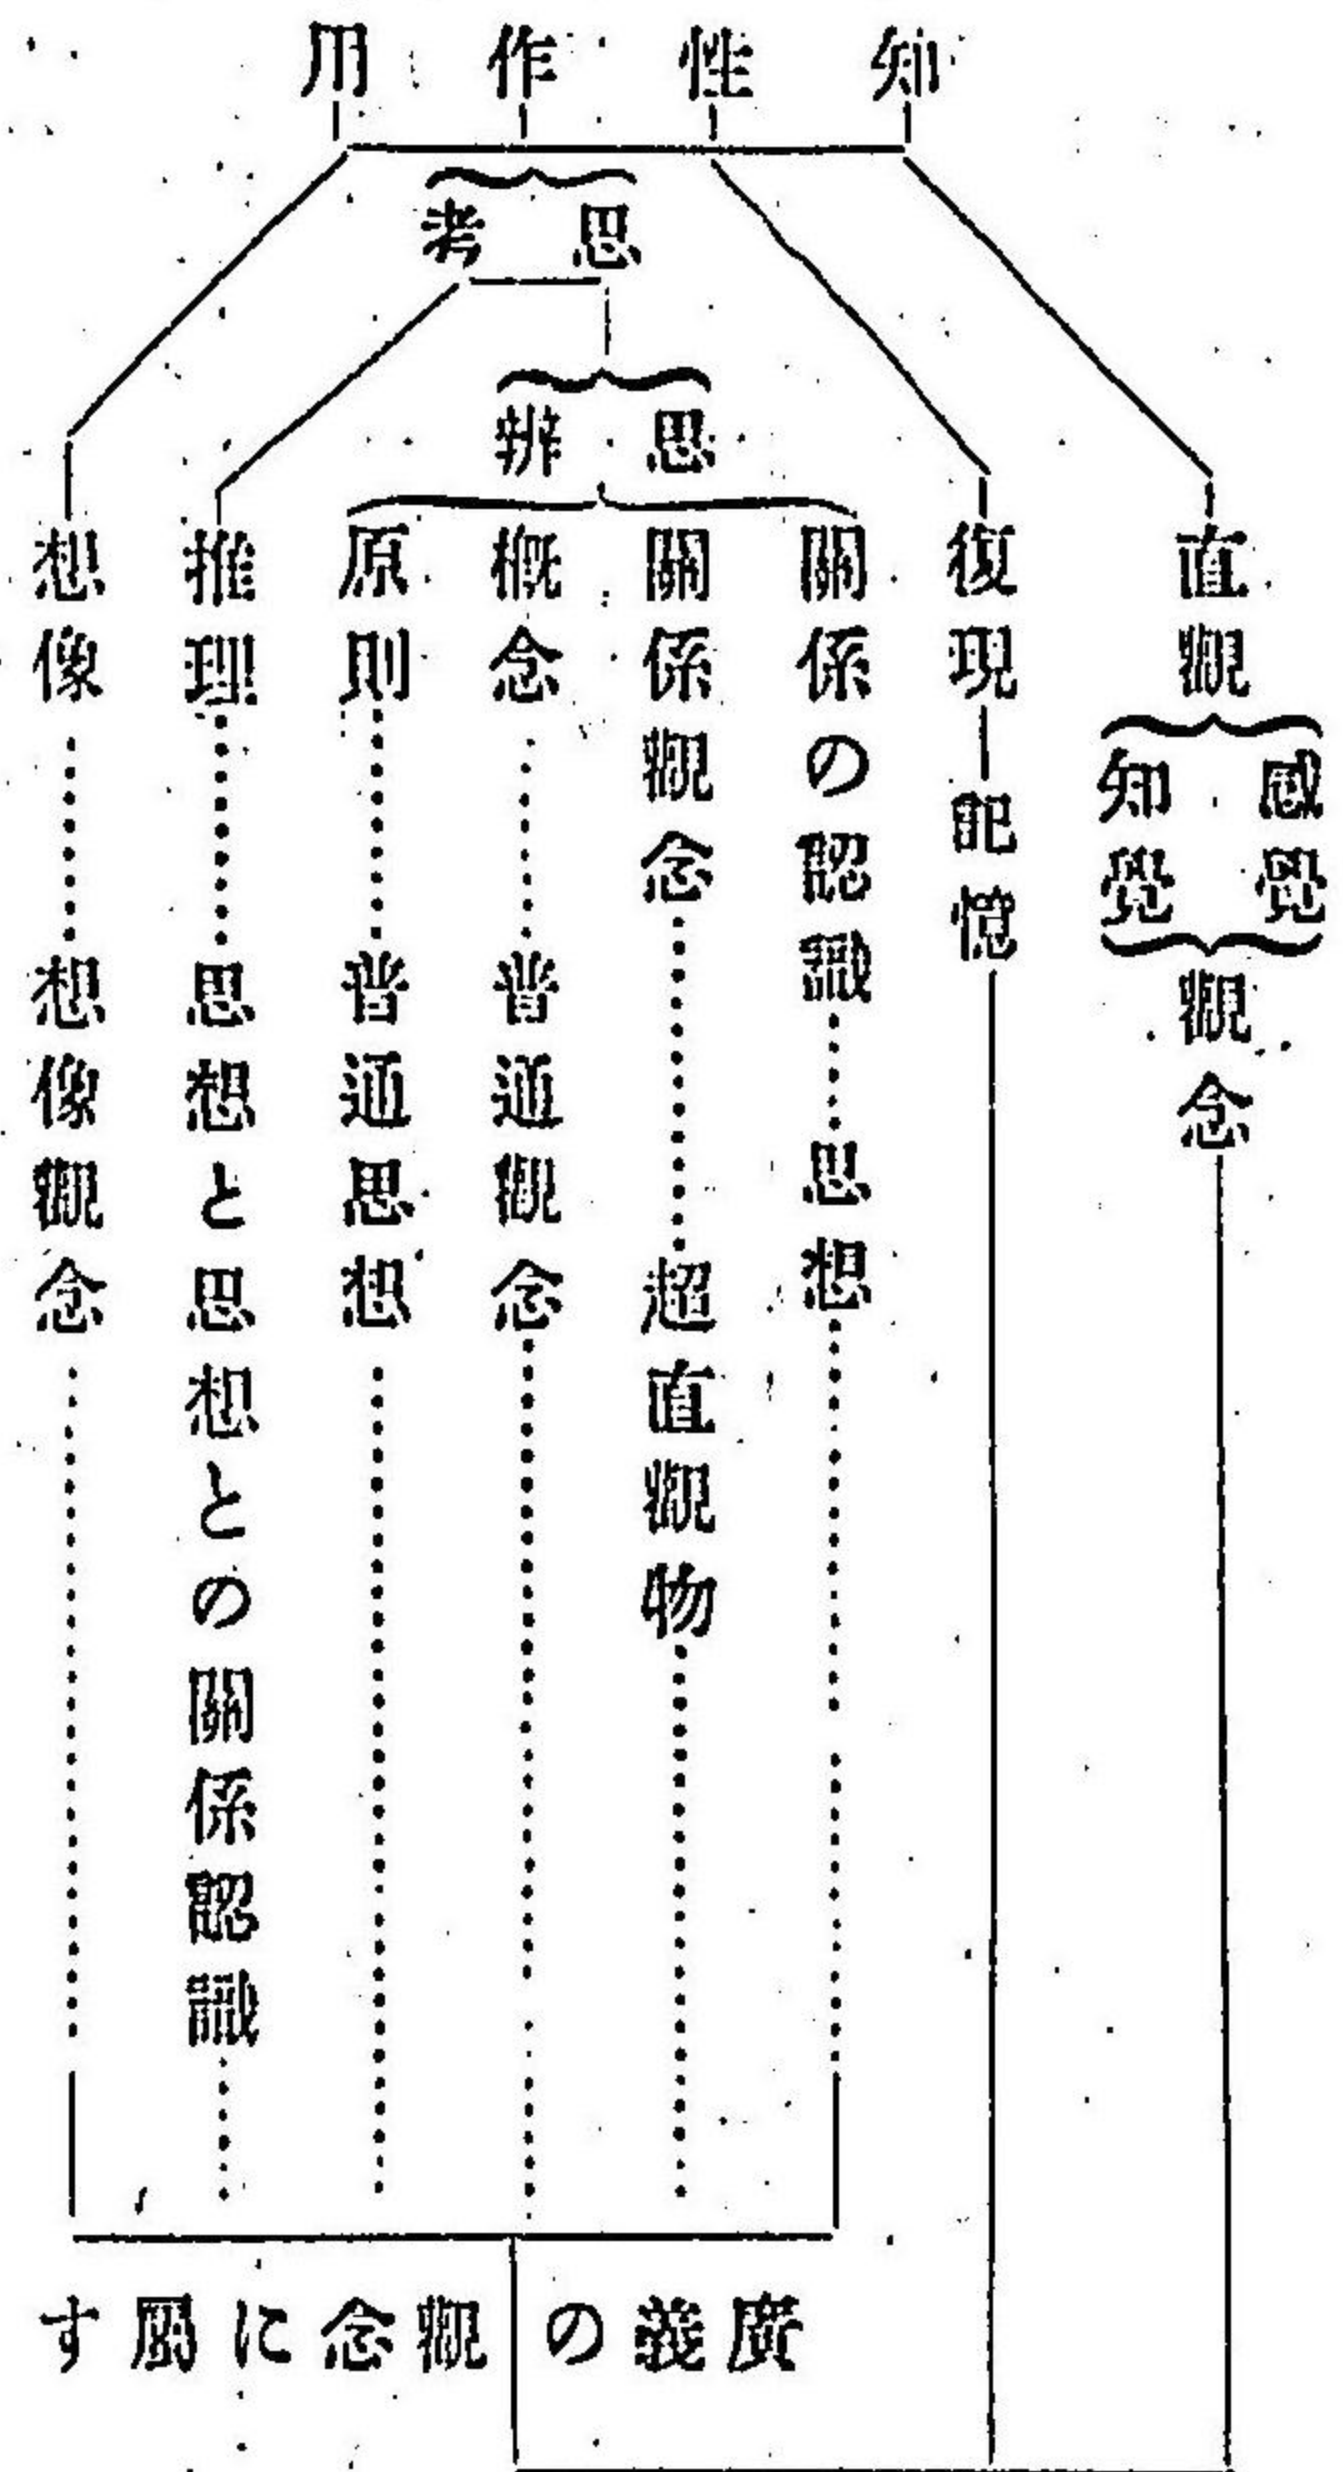 知性作用
思考
思辨
直觀
感覺
知覺
觀念
復現―記憶
關係の認識……思想
關係觀念……超直觀物
概念……普通觀念
原則……普通思想
推理……思想と思想との關係認識
想像……想像觀念
廣義の觀念に屬す